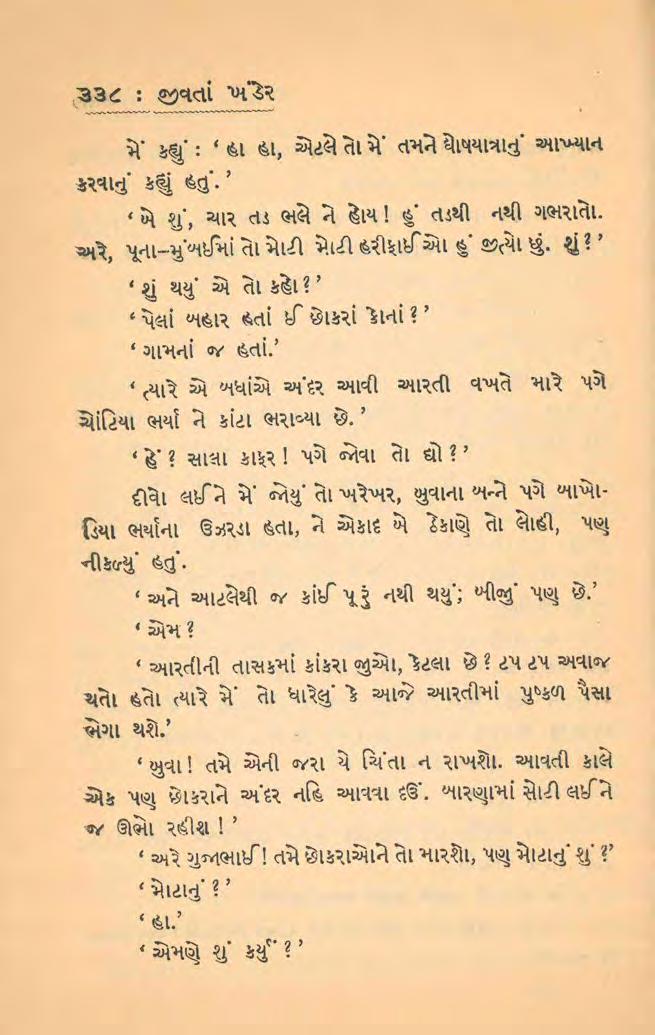 ૩૩૮ : જીવતાં ખંડેર
મેં કહ્યું : ‘ હા હા, એટલે તો મેં તમને ઘોષયાત્રાનું આખ્યાન
કરવાનું કહ્યું હતું.’
‘ બે શું, ચાર તડ ભલે ને હોય! હું તડથી નથી ગભરાતો.
અરે, પૂના–મુંબઈમાં તો મોટી મોટી હરીફાઈઓ હું જીત્યો છું. શું?’
‘ શું થયું એ તો કહો?’
‘ પેલાં બહાર હતાં ઈ છોકરાં કોનાં?’
‘ ગામનાં જ હતાં.’
‘ ત્યારે એ બધાંએ અંદર આવી આરતી વખતે મારે પગે
ચોંટિયા ભર્યા ને કાંટા ભરાવ્યા છે. ’
‘ હેં? સાલા કાફર! પગે જોવા તો દ્યો?’
દીવો લઈને મેં જોયું તો ખરેખર, બુવાના બન્ને પગે બાખો-
ડિયા ભર્યાના ઉઝરડા હતા, ને એકાદ બે ઠેકાણે તો લોહી, પણ
નીકળ્યું હતું.
‘ અને આટલેથી જ કાંઈ પૂરું નથી થયું; બીજું પણ છે.’
‘ એમ?
‘ આરતીની તાસકમાં કાંકરા જુઓ, કેટલા છે? ટપ ટપ અવાજ
થતો હતો ત્યારે મેં તો ધારેલું કે આજે આરતીમાં પુષ્કળ પૈસા
ભેગા થશે.’
‘ બુવા! તમે એની જરા યે ચિંતા ન રાખશો. આવતી કાલે
એક પણ છોકરાને અંદર નહિ આવવા દઉં. બારણામાં સોટી લઈને
જ ઊભો રહીશ!’
‘ અરે ગુજાભાઈ! તમે છોકરાઓને તો મારશો, પણ મોટાનું શું?’
‘ મોટાનું?’
‘ હા.’
‘ એમણે શું કર્યું?’